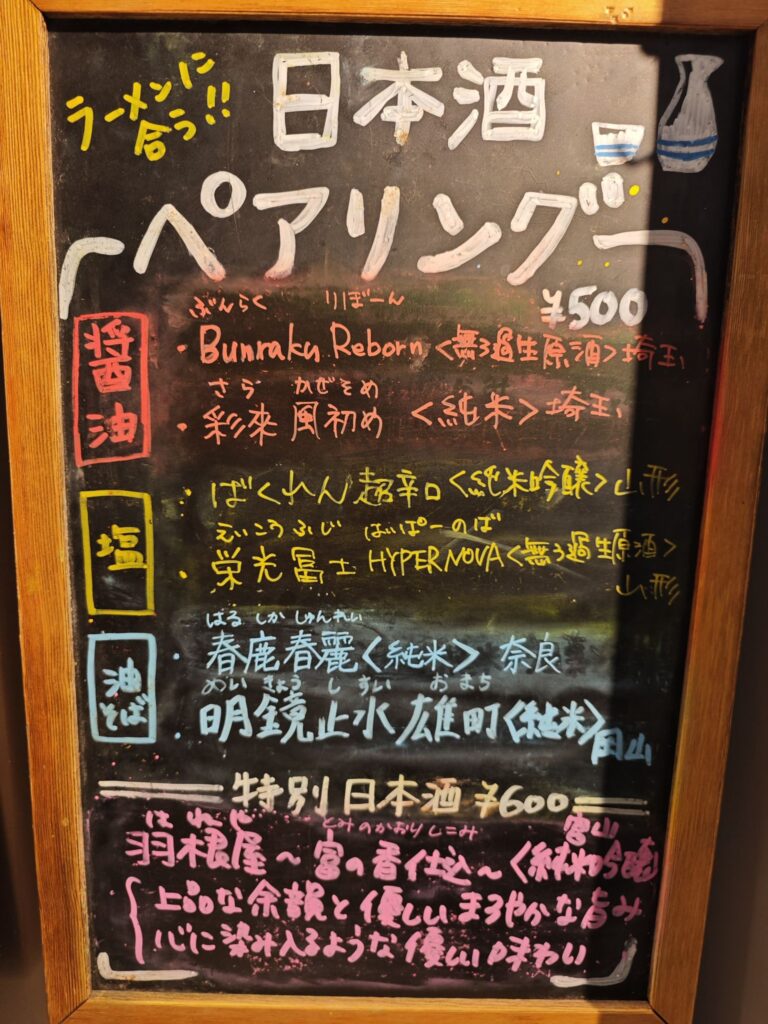 ラーメンに
合う!!
日本酒
ペアリング
¥500
醤油
ぶんらく りぼーん
・Bunraku Reborn <無ろ過生原酒> 埼玉
さら かぜそめ
・彩來 風初め <純米> 埼玉
塩
・ばくれん 超辛口 <純米吟醸> 山形
えいこうふじ はいぱーのば
・栄光冨士 HYPERNOVA <無ろ過生原酒>
山形
油そば
はるしかしゅんれい
・春鹿春麗<純米> 奈良
めいきょうしすい おまち
・明鏡止水 雄町<純米>
特別日本酒 ¥600
はねや とみのかおりしこみ 富山
羽根屋〜富の香仕込〜<純米吟醸>
上品な余韻と優しいまろやかな旨み
心に染み入るような優しい味わい